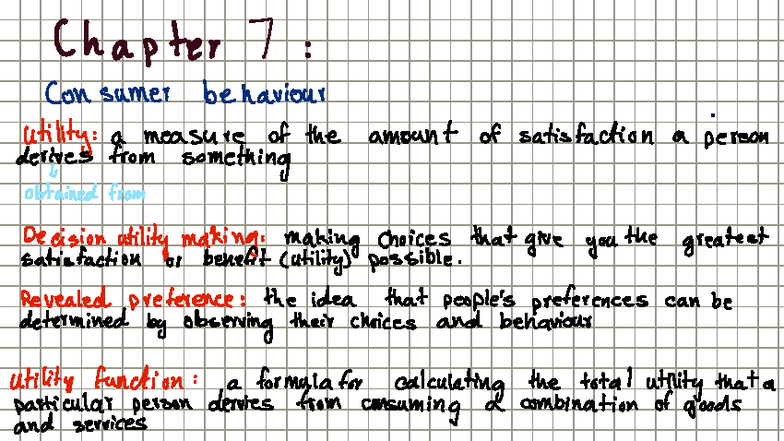 Chapter 7:
Consumer behaviour
Utility: a measure of the amount of satisfaction a person
derives from something
obtained from
Decision utility making: making choices that give you the greatest
satisfaction or benefit (utility) possible.
Revealed preference: the idea that people's preferences can be
determined by observing their choices and behaviour
Utility function: a formula for calculating the total utility that a
particular person derives from consuming a combination of goods
and services